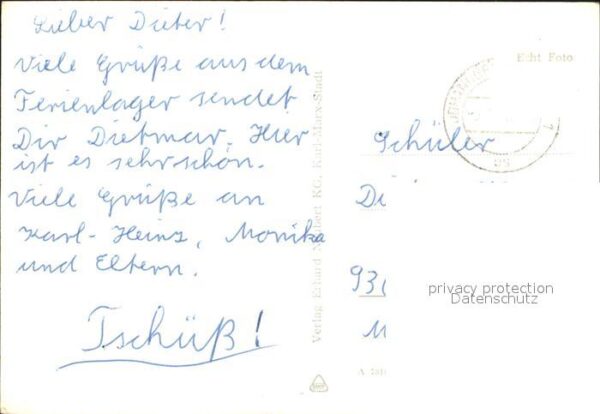 Lieber Dieter!
Viele Grüße aus dem
Ferienlager sendet
Dir Dietmar. Hier
ist es sehr schön.
Viele Grüße an
Karl-Heinz, Monika
und Eltern.
Tschüß!
Verlag Erhard Neubert KG, Karl-Marx-Stadt
Echt Foto
Schüler
Di
93
M
privacy protection
Datenschutz